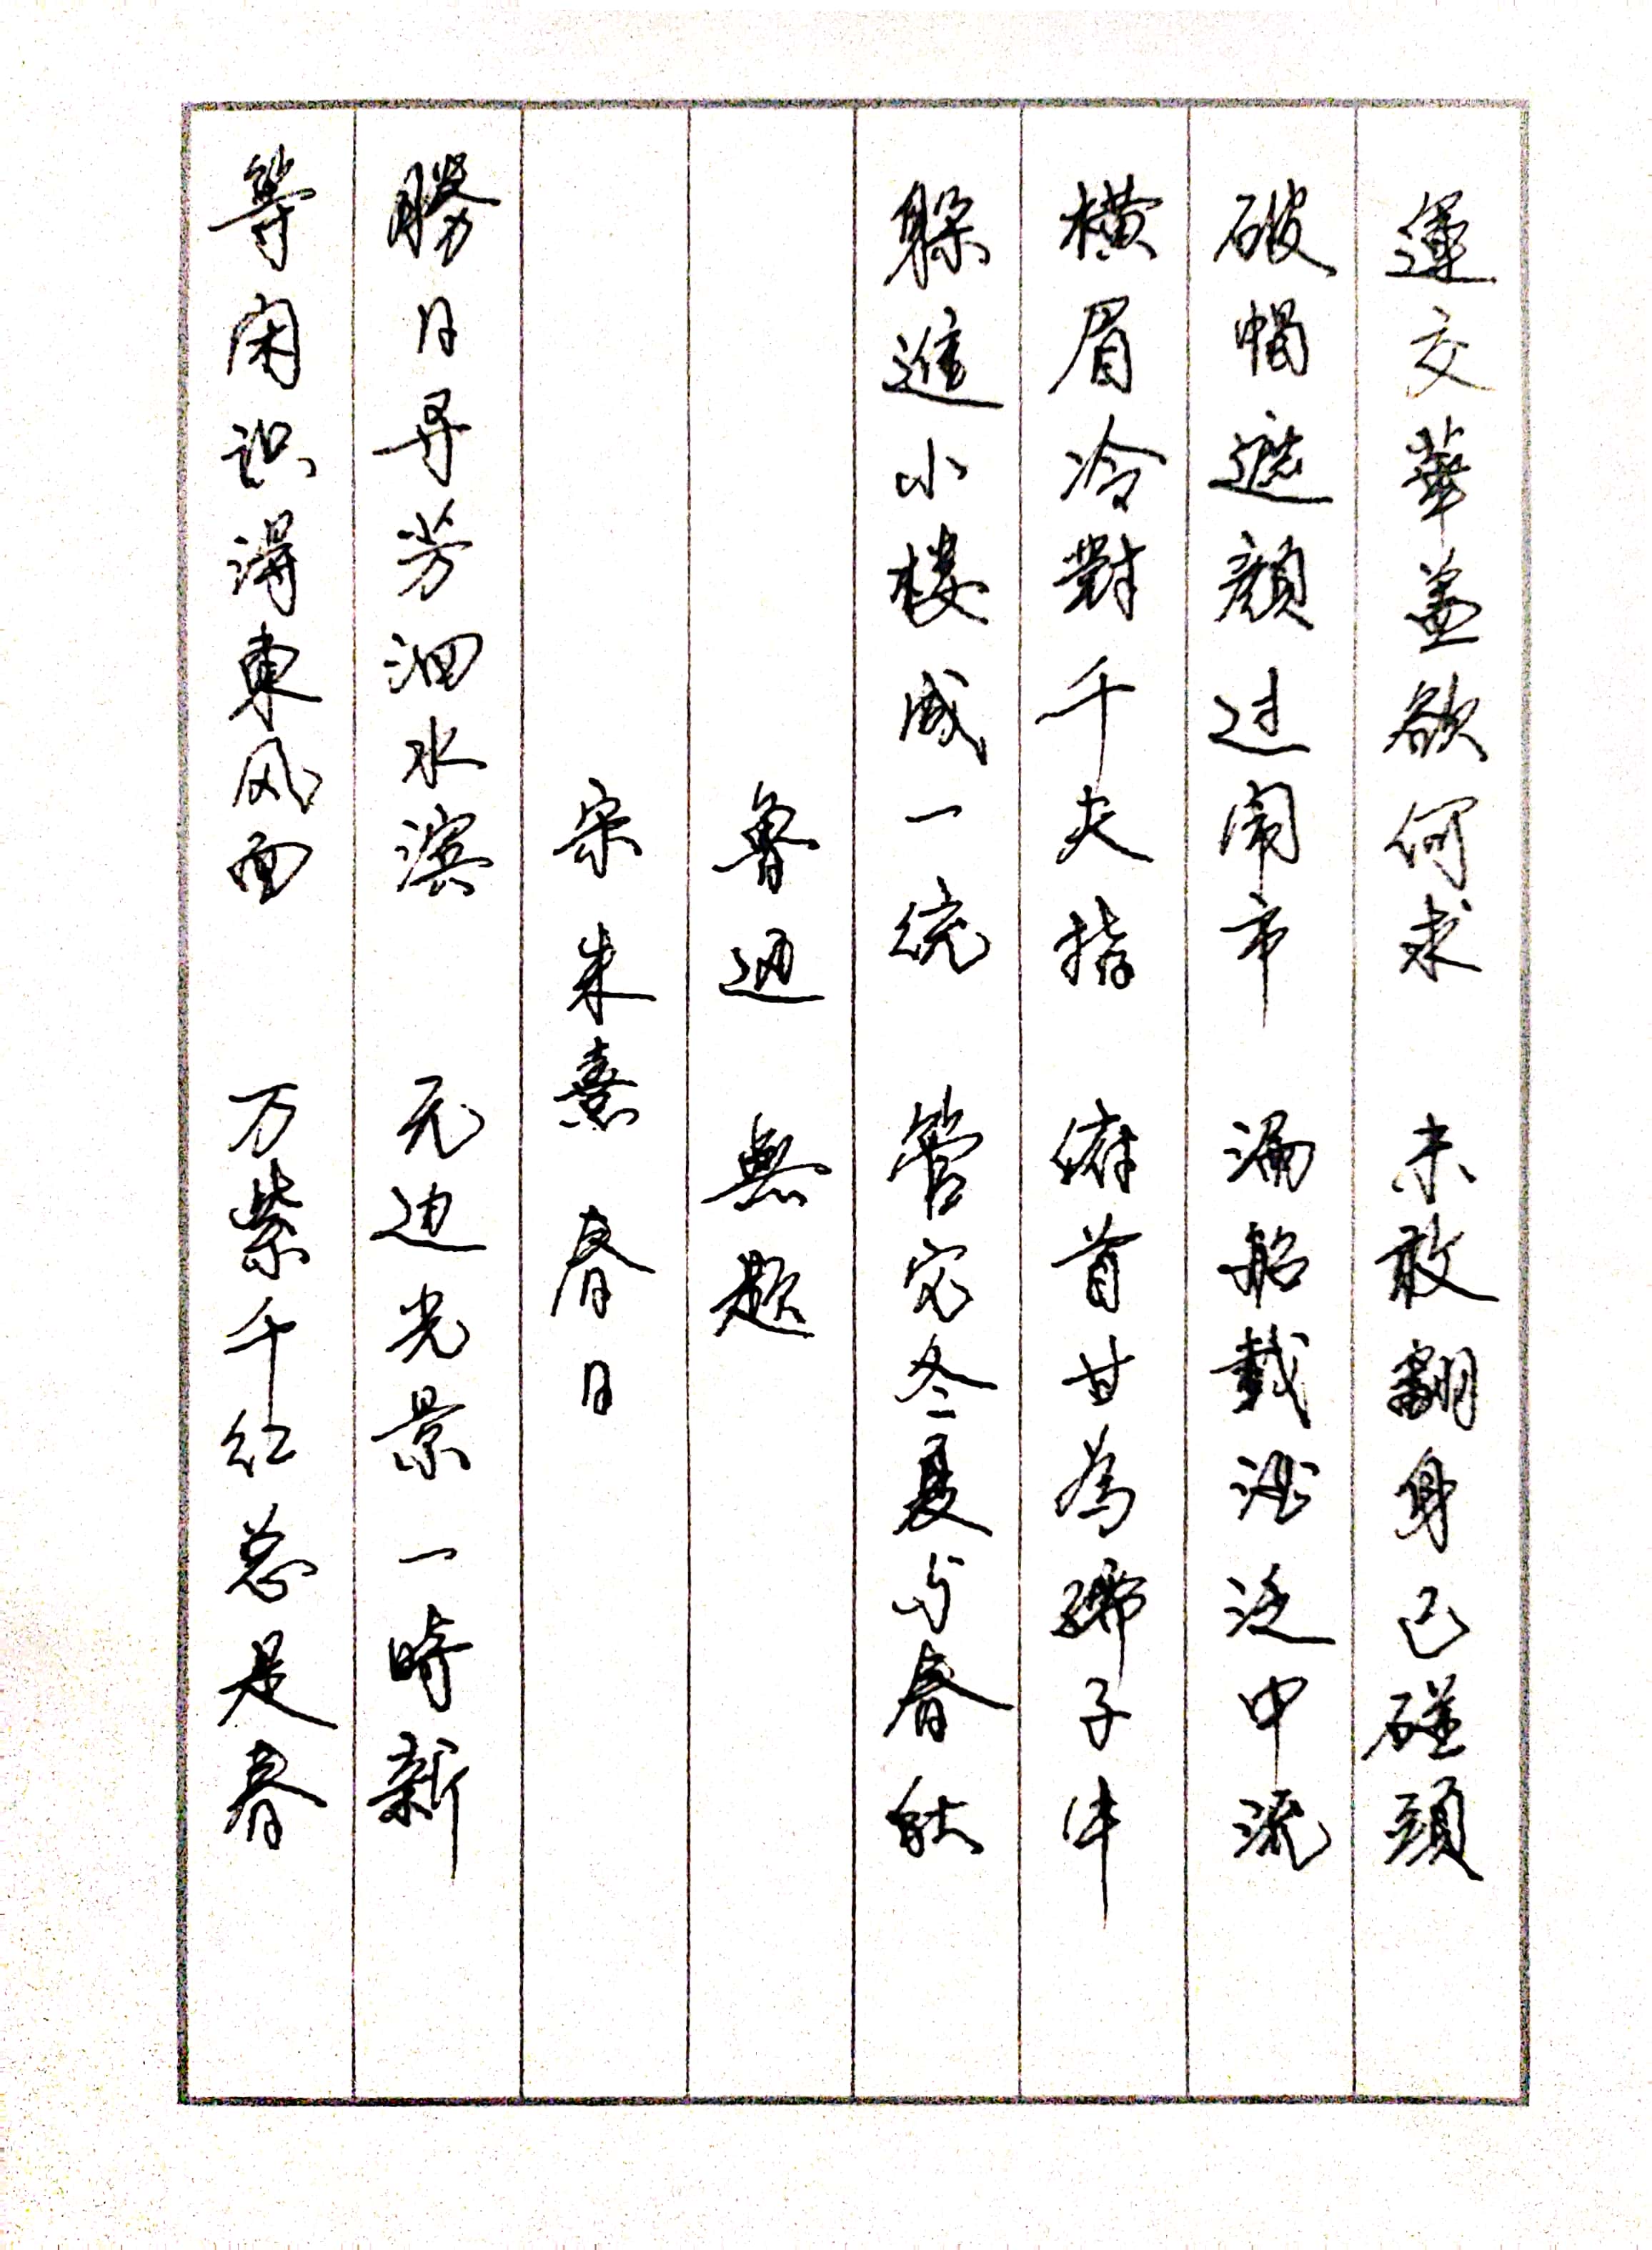 運交華盖欲何求 未敢翻身已碰頭
破帽遮顔过闹市 漏船載酒泛中流
横眉冷對千夫指 俯首甘為孺子牛
躲進小楼成一统 管它冬夏与春秋
魯迅 無题
宋朱熹 春日
勝日寻芳泗水滨 无边光景一時新
等闲识得東风面 万紫千红总是春